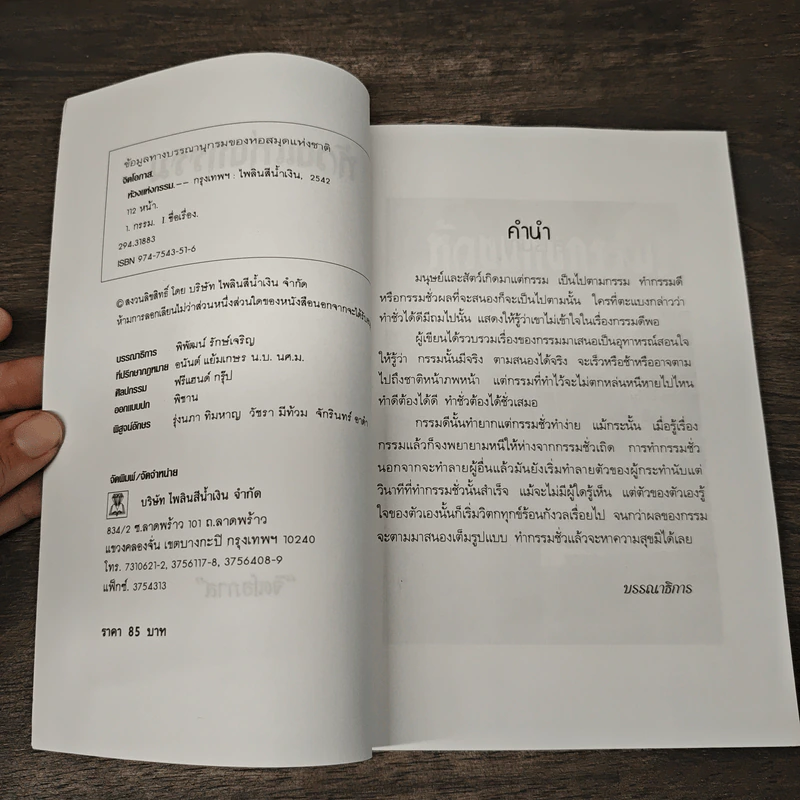 ข้อมูลทางบรรณานุกรมของหอสมุดแห่งชาติ
จิตโอภาส.
ห้วงแห่งกรรม.-- กรุงเทพฯ : ไพลินสีน้ำเงิน, 2542
112 หน้า.
1. กรรม. I. ชื่อเรื่อง.
294.31883
ISBN 974-7543-51-6
© สงวนลิขสิทธิ์ โดย บริษัท ไพลินสีน้ำเงิน จำกัด
ห้ามการลอกเลียนไม่ว่าส่วนหนึ่งส่วนใดของหนังสือนอกจากจะได้รับ
บรรณาธิการ พิพัฒน์ รักษ์เจริญ
ที่ปรึกษากฎหมาย อนันต์ แย้มเกษร น.บ. นศ.ม.
ศิลปกรรม ฟรีแฮนด์ กรุ๊ป
ออกแบบปก พิชาน
พิสูจน์อักษร รุ่งนภา ทิมหาญ วัชรา มีท้วม จักรินทร์
จัดพิมพ์/จัดจำหน่าย
บริษัท ไพลินสีน้ำเงิน จำกัด
834/2 ซ.ลาดพร้าว 101 ถ.ลาดพร้าว
แขวงคลองจั่น เขตบางกะปิ กรุงเทพฯ 10240
โทร. 7310621-2, 3756117-8, 3756408-9
แฟ็กซ์. 3754313
ราคา 85 บาท
คำนำ
มนุษย์และสัตว์เกิดมาแต่กรรม เป็นไปตามกรรม ทำกรรมดี
หรือกรรมชั่วผลที่จะสนองก็จะเป็นไปตามนั้น ใครที่ตะแบงกล่าวว่า
ทำชั่วได้ดีมีถมไปนั้น แสดงให้รู้ว่าเขาไม่เข้าใจในเรื่องกรรมดีพอ
ผู้เขียนได้รวบรวมเรื่องของกรรมมาเสนอเป็นอุทาหรณ์สอนใจ
ให้รู้ว่า กรรมนั้นมีจริง ตามสนองได้จริง จะเร็วหรือช้าหรืออาจตาม
ไปถึงชาติหน้าภพหน้า แต่กรรมที่ทำไว้จะไม่ตกหล่นหนีหายไปไหน
ทำดีต้องได้ดี ทำชั่วต้องได้ชั่วเสมอ
กรรมดีนั้นทำยากแต่กรรมชั่วทำง่าย แม้กระนั้น เมื่อรู้เรื่อง
กรรมแล้วก็จงพยายามหนีให้ห่างจากกรรมชั่วเถิด การทำกรรมชั่ว
นอกจากจะทำลายผู้อื่นแล้วมันยังเริ่มทำลายตัวของผู้กระทำนับแต่
วินาทีที่ทำกรรมชั่วนั้นสำเร็จ แม้จะไม่มีผู้ใดรู้เห็น แต่ตัวของตัวเองรู้
ใจของตัวเองนั้นก็เริ่มวิตกทุกข์ร้อนกังวลเรื่อยไป จนกว่าผลของกรรม
จะตามมาสนองเต็มรูปแบบ ทำกรรมชั่วแล้วจะหาความสุขมิได้เลย
บรรณาธิการ